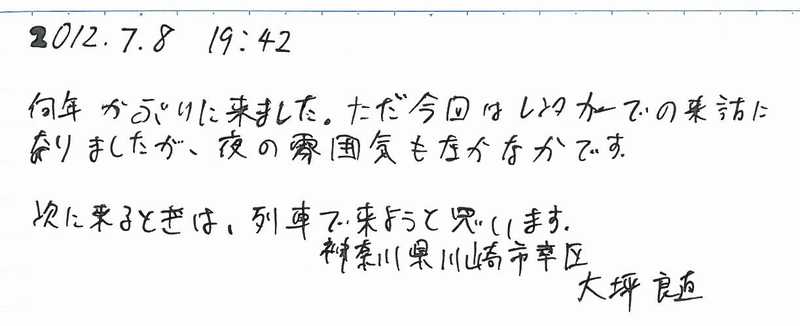 2012.7.8 19:42
何年かぶりに来ました。ただ今回はレンタカーでの来訪に
なりましたが、夜の雰囲気もなかなかです。
次に来るときは、列車で来ようと思います。
神奈川県川崎市幸区
大坪 良直